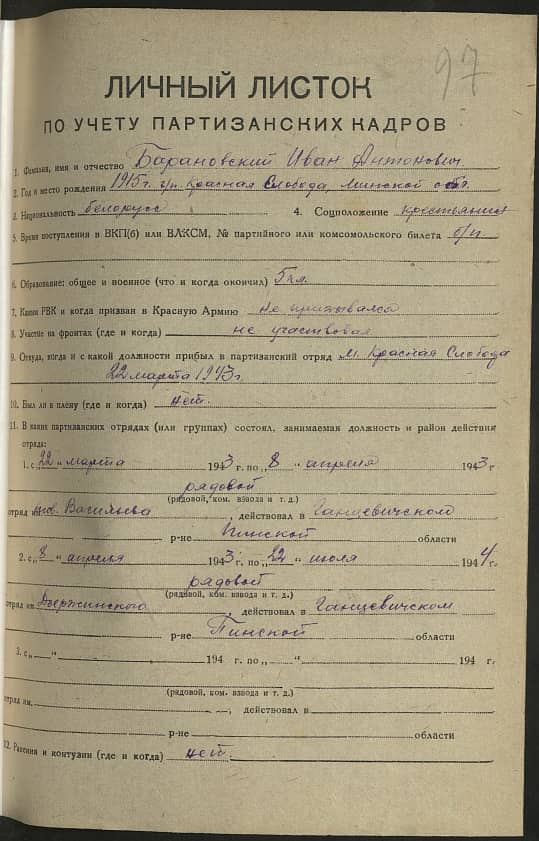 97
ЛИЧНЫЙ ЛИСТОК
ПО УЧЕТУ ПАРТИЗАНСКИХ КАДРОВ
1. Фамилия, имя и отчество Барановский Иван Антонович
2. Год и место рождения 1915г. г/п. Красная Слобода, Минской обл.
3. Национальность белорусс 4. Соцположение крестьянин
5. Время поступления в ВКП(б) или ВЛКСМ, № партийного или комсомольского билета б/п
6. Образование: общее и военное (что и когда окончил) 5 кл.
7. Каким РВК и когда призван в Красную Армию не призывался
8. Участие на фронтах (где и когда) не участвовал
9. Откуда, когда и с какой должности прибыл в партизанский отряд м. Красная Слобода
22 марта 1943г.
10. Был ли в плену (где и когда) нет.
11. В каких партизанских отрядах (или группах) состоял, занимаемая должность и район действия
отряда:
1. с „22" марта 1943 г. по „8" апреля 1943 г
рядовой
(рядовой, ком. взвода и т. д.)
отряд им. , действовал в Ганцевичском
р-не Пинской области
2. с „8" апреля 1943 г. по „22" июля 1944 г.
рядовой
(рядовой, ком. взвода и т. д.)
отряд им. Дзержинского , действовал в Ганцевичском
р-не Пинской области
3. с „ " 194 г. по „ " 194 г.
(рядовой, ком. взвода и т. д.)
отряд им. , действовал в
р-не области
12. Ранения и контузии (где и когда) нет